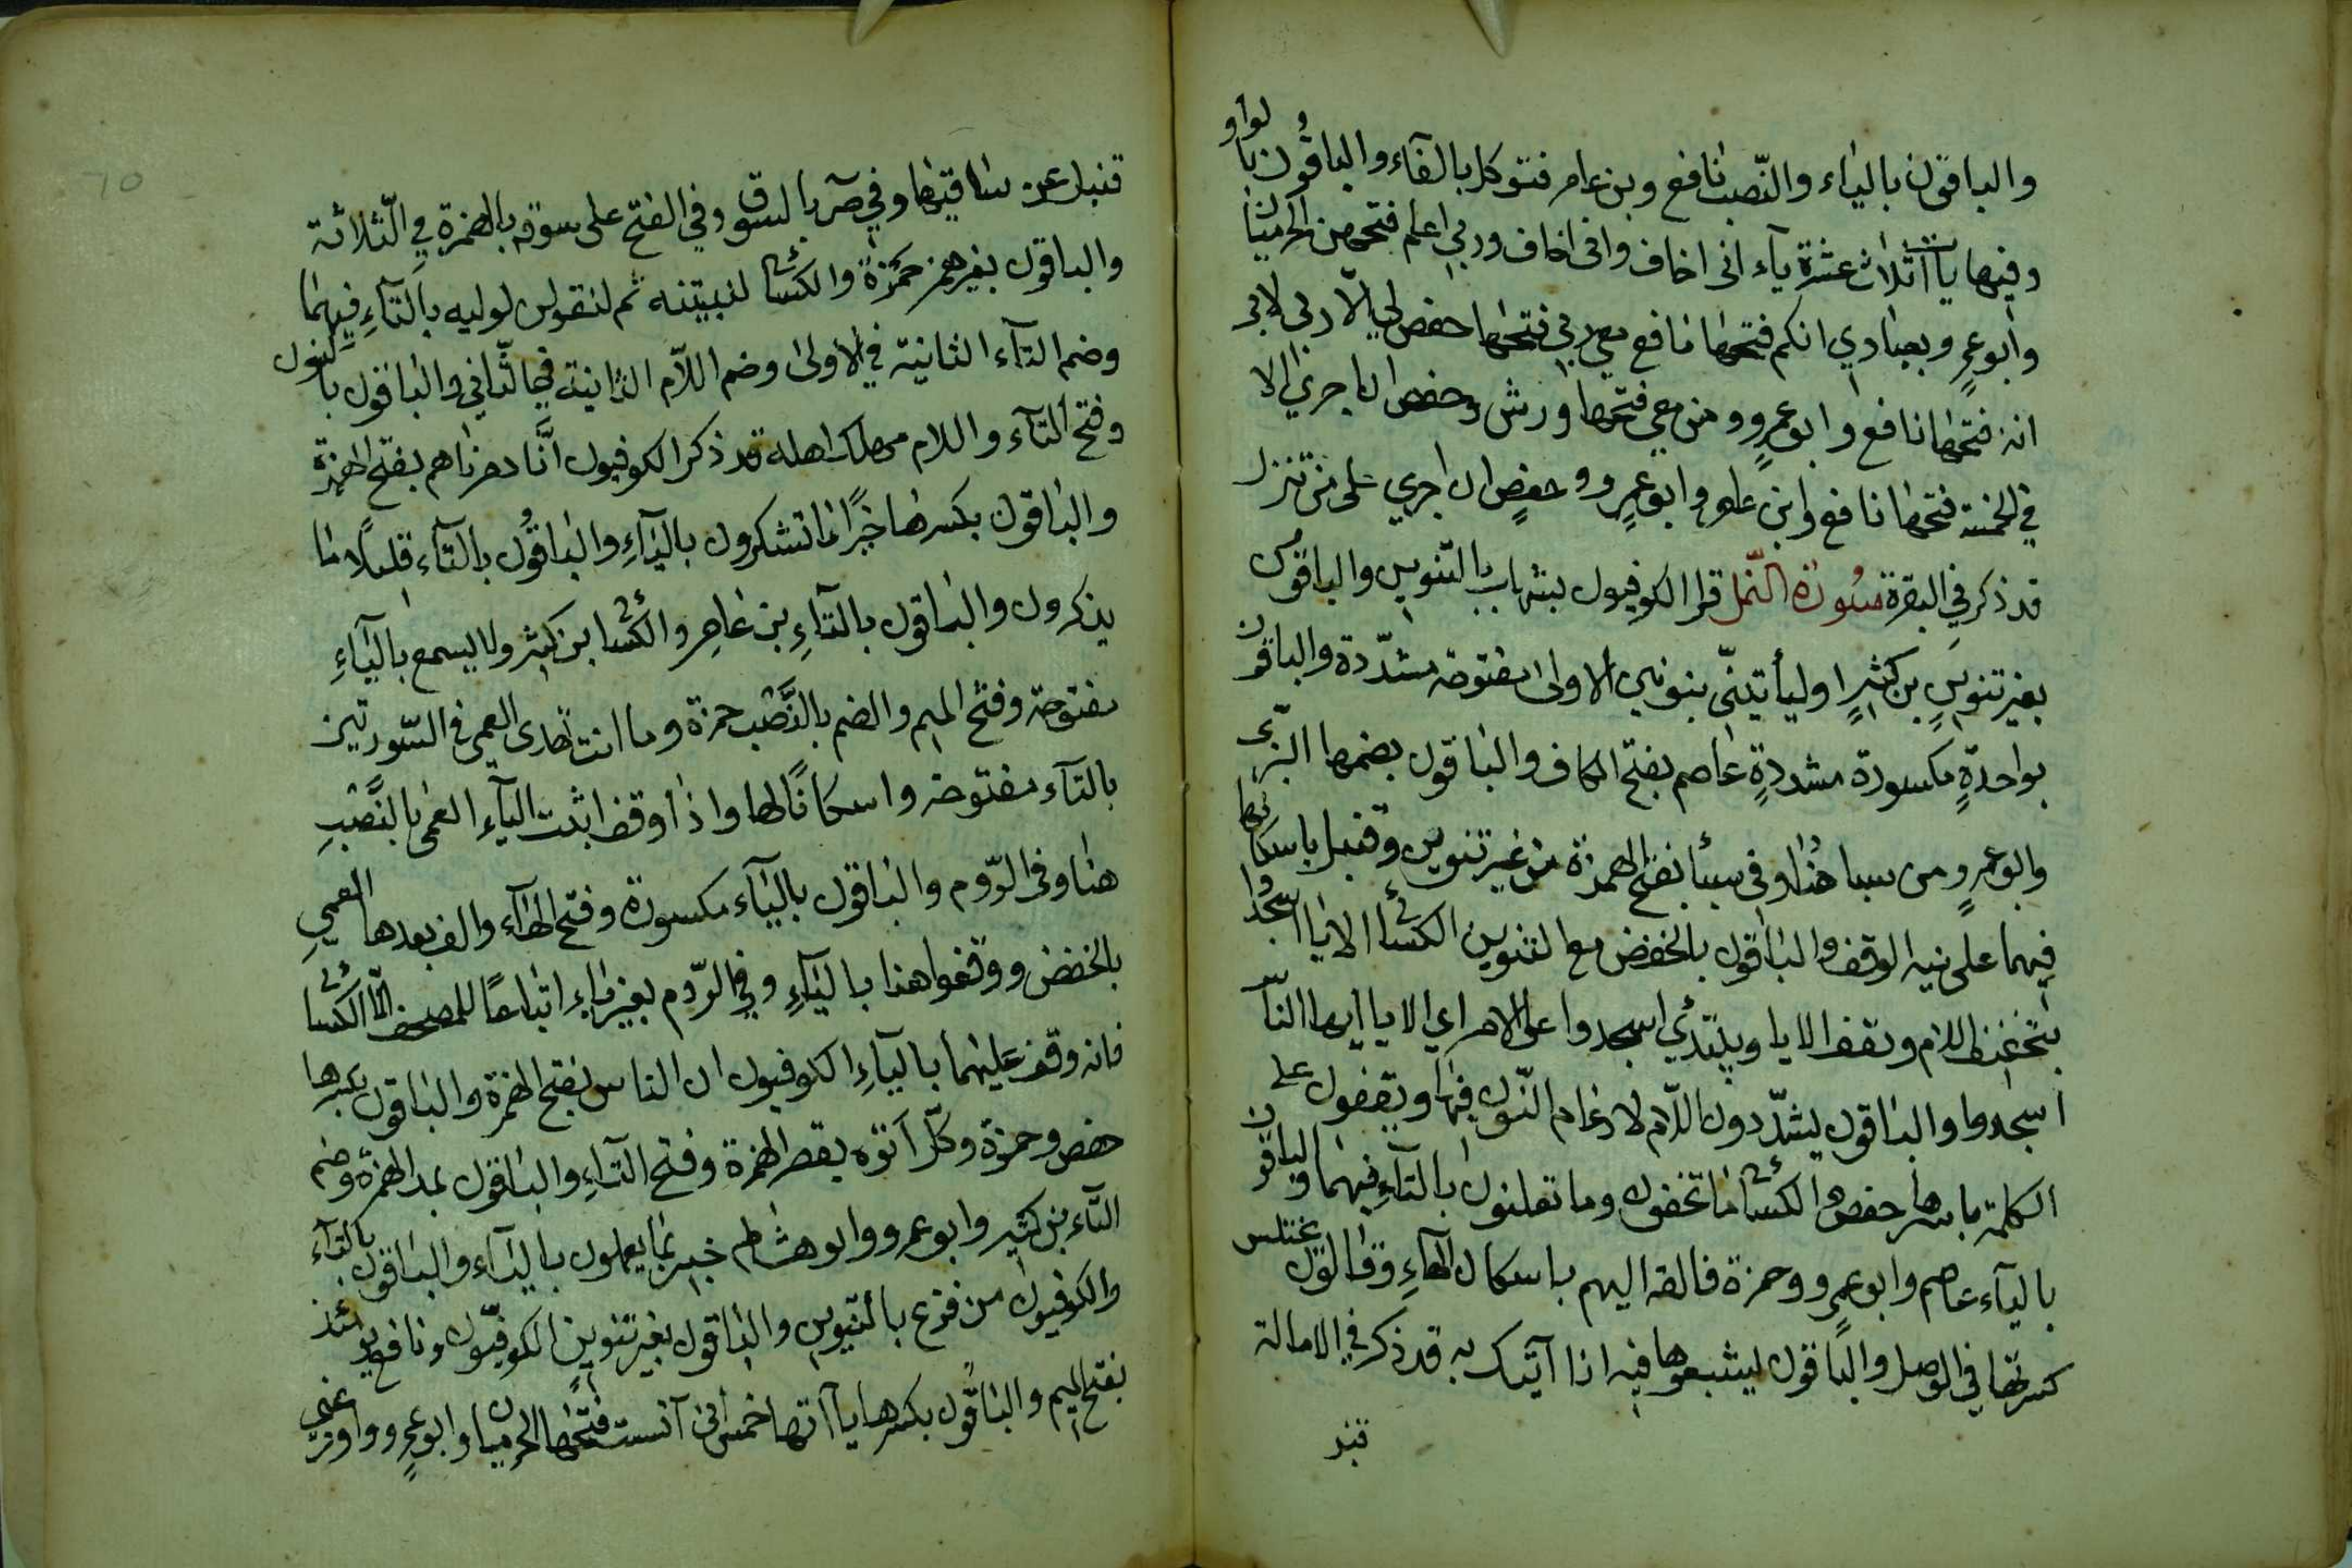 والباقون بالياء والنّصب نافع وبن عامر فتوكل بالفآء والباقون بالواو
وفيها يآات ثلاث عشرة يآء انى اخاف وانى اخاف وربي اعلم فتحهن الحرميان
وأبو عمرٍ وبعبادي انكم فتحها نافع معي ربي فتحها حفص لي الّا ربى لابى
انه فتحها نافع وابو عمرٍو ومن معي فتحها ورش وحفص ان اجري الا
في الخمسة فتحها نافع وابن عامر وابو عمرٍو وحفصٍ ان اجري على من تنزل
قد ذكر في البقرة سُورة النّمل قرا الكوفيون بشهاب بالتنوين والباقون
بغير تنوينٍ بن كثيرٍ اوليأتينّى بنونين الاولى مفتوحة مشدّدة والباقون
بواحدةٍ مكسورة مشددةٍ عاصم بفتح الكاف والباقون بضمها البزّى
وابو عمرٍو من سبا هنا وفى سبأ بفتح الهمزة من غير تنوين وقنبل باسكانها
فيهما على نيه الوقف والباقون بالخفض مع التنوين الكسائى الا يا اسجدوا
بتخفيف اللام ويقف الا يا ويبتدئ اسجدوا على الامر اي الا يا أيها النآس
اسجدوا والباقون يشدّدون اللّام لادغام النّون فيها ويقفون على
الكلمة باسرها حفص والكسائى ما تخفون وما تعلنون بالتآءِ فيهما والباقون
بالياء عاصم وابو عمرٍو وحمزة فالقه اليهم باسكان الهآءِ وقالون يختلس
كسرتها في الوصل والباقون يشبعوها فيه انا آتيك به قد ذكر في الامالة
قنبل
قنبل عن ساقيها وفي صٓ بالسوق وفي الفتح على سوقه بالهمزة في الّثلاثة
والباقون بغير همز حمزة والكسائى لنبيتنه ثم لنقولن لوليه بالتآءِ فيهما
وضم التآء الثانية في الاولى وضم اللّام الثانية في الثّانى والباقون بالنون
وفتح التآء واللام مهلك اهله قد ذكر الكوفيون أنّا دمرناهم بفتح الهمزة
والباقون بكسرها خيرًا ما تشكرون باليآءِ والباقون بالتآء قليلاً ما
يذكرون والباقون بالتآءِ بن عامر والكسائى ابن كثير ولا يسمع باليآءِ
مفتوحة وفتح الميم والضم بالنَّصْب حمزة وما انت تهدى العمى فى السّورتين
بالتآء مفتوحة واسكانًا لها واذا وقف اثبت اليآءِ العمى بالنَّصْبِ
هنا وفى الرّوم والباقون باليآء مكسورة وفتح الهآء والف بعدها العميِ
بالخفض ووقفوا هنا باليآءِ وفي الرّوم بغير ياءٍ اتباعًا للمصحف الّا الكسائى
فانه وقف عليهما باليآءِ الكوفيون ان الناس بفتح الهمزة والباقون بكسرها
حفص وحمزة وكلّ اتوه بقصر الهمزة وفتح التآءِ والباقون بمد الهمزة وضم
التّاء بن كثير وابو عمرو وابو هشام خبير بما يعملون باليآء والباقون بالتآء
والكوفيون من فزع بالتنوين والباقون بغير تنوين الكوفيّون ونافع يومئذ
بفتح الميم والباقون بكسرها يآاتها خمس انى آنست فتحها الحرميان وابو عمرٍو واوزعني